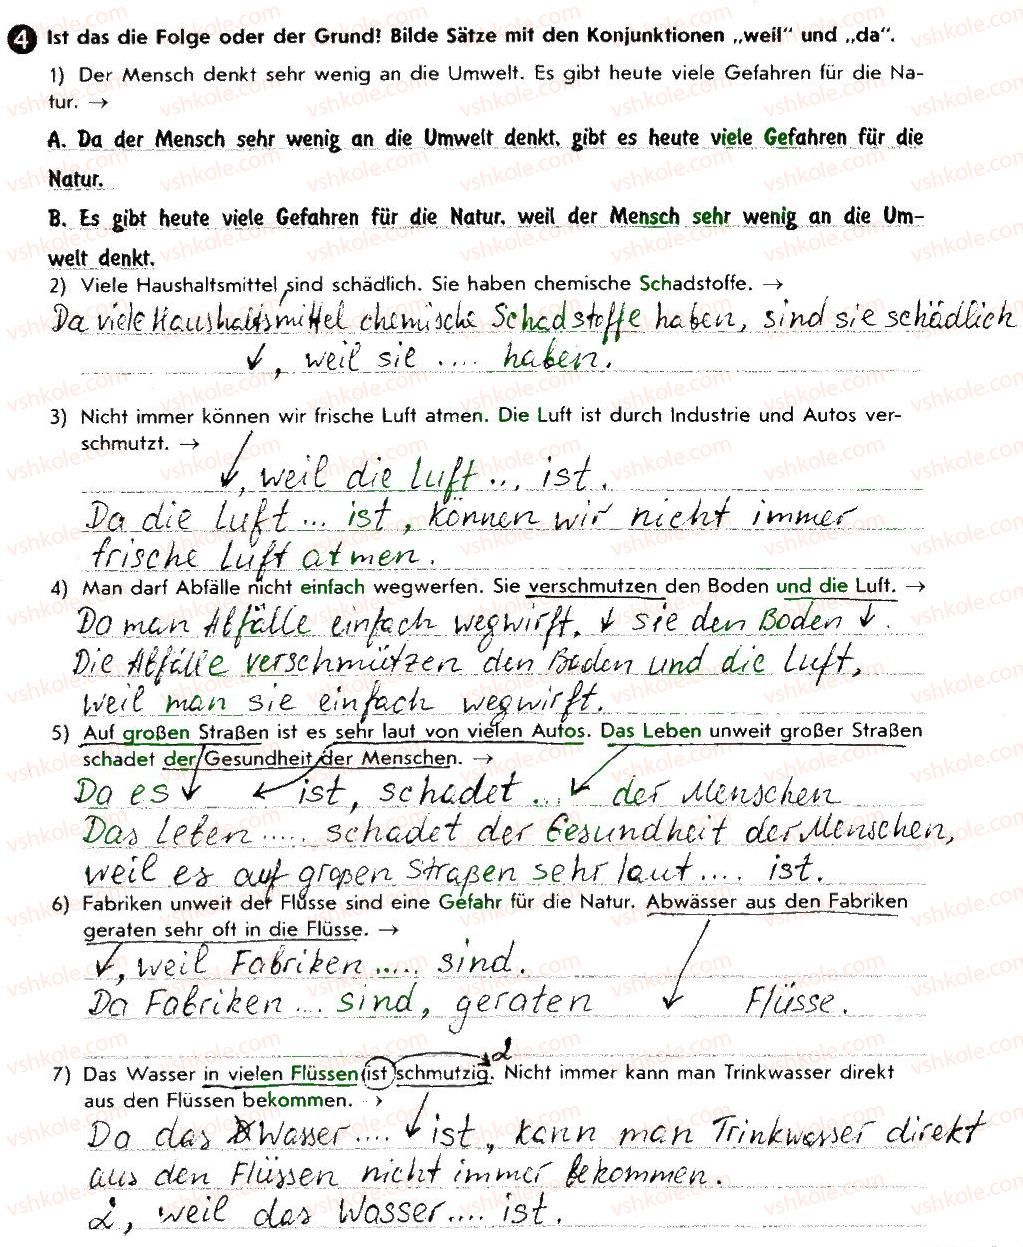 4 Ist das die Folge oder der Grund! Bilde Sätze mit den Konjunktionen „weil" und „da".
1) Der Mensch denkt sehr wenig an die Umwelt. Es gibt heute viele Gefahren für die Na-
tur. →
A. Da der Mensch sehr wenig an die Umwelt denkt, gibt es heute viele Gefahren für die
Natur.
B. Es gibt heute viele Gefahren für die Natur. weil der Mensch sehr wenig an die Um-
welt denkt.
2) Viele Haushaltsmittel sind schädlich. Sie haben chemische Schadstoffe. →
Da viele Haushaltsmittel chemische Schadstoffe haben, sind sie schädlich
↓, weil sie .... haben.
3) Nicht immer können wir frische Luft atmen. Die Luft ist durch Industrie und Autos ver-
schmutzt. →
↓, weil die Luft ... ist.
Da die Luft ... ist, können wir nicht immer
frische Luft atmen.
4) Man darf Abfälle nicht einfach wegwerfen. Sie verschmutzen den Boden und die Luft. →
Da man Abfälle einfach wegwirft, ↓ sie den Boden ↓.
Die Abfälle verschmützen den Boden und die Luft,
weil man sie einfach wegwirft.
5) Auf großen Straßen ist es sehr laut von vielen Autos. Das Leben unweit großer Straßen
schadet der Gesundheit der Menschen. →
Da es ↓ ↙ ist, schadet ... ↙ der Menschen
Das Leben ..... schadet der Gesundheit der Menschen,
weil es auf großen Straßen sehr laut .... ist.
6) Fabriken unweit der Flüsse sind eine Gefahr für die Natur. Abwässer aus den Fabriken
geraten sehr oft in die Flüsse. →
↓, weil Fabriken ..... sind.
Da Fabriken ... sind, geraten ↓ Flüsse.
2
7) Das Wasser in vielen Flüssen ist schmutzig. Nicht immer kann man Trinkwasser direkt
aus den Flüssen bekommen. →
Da das Wasser .... ↓ ist, kann man Trinkwasser direkt
aus den Flüssen nicht immer bekommen.
2, weil das Wasser .... ist.